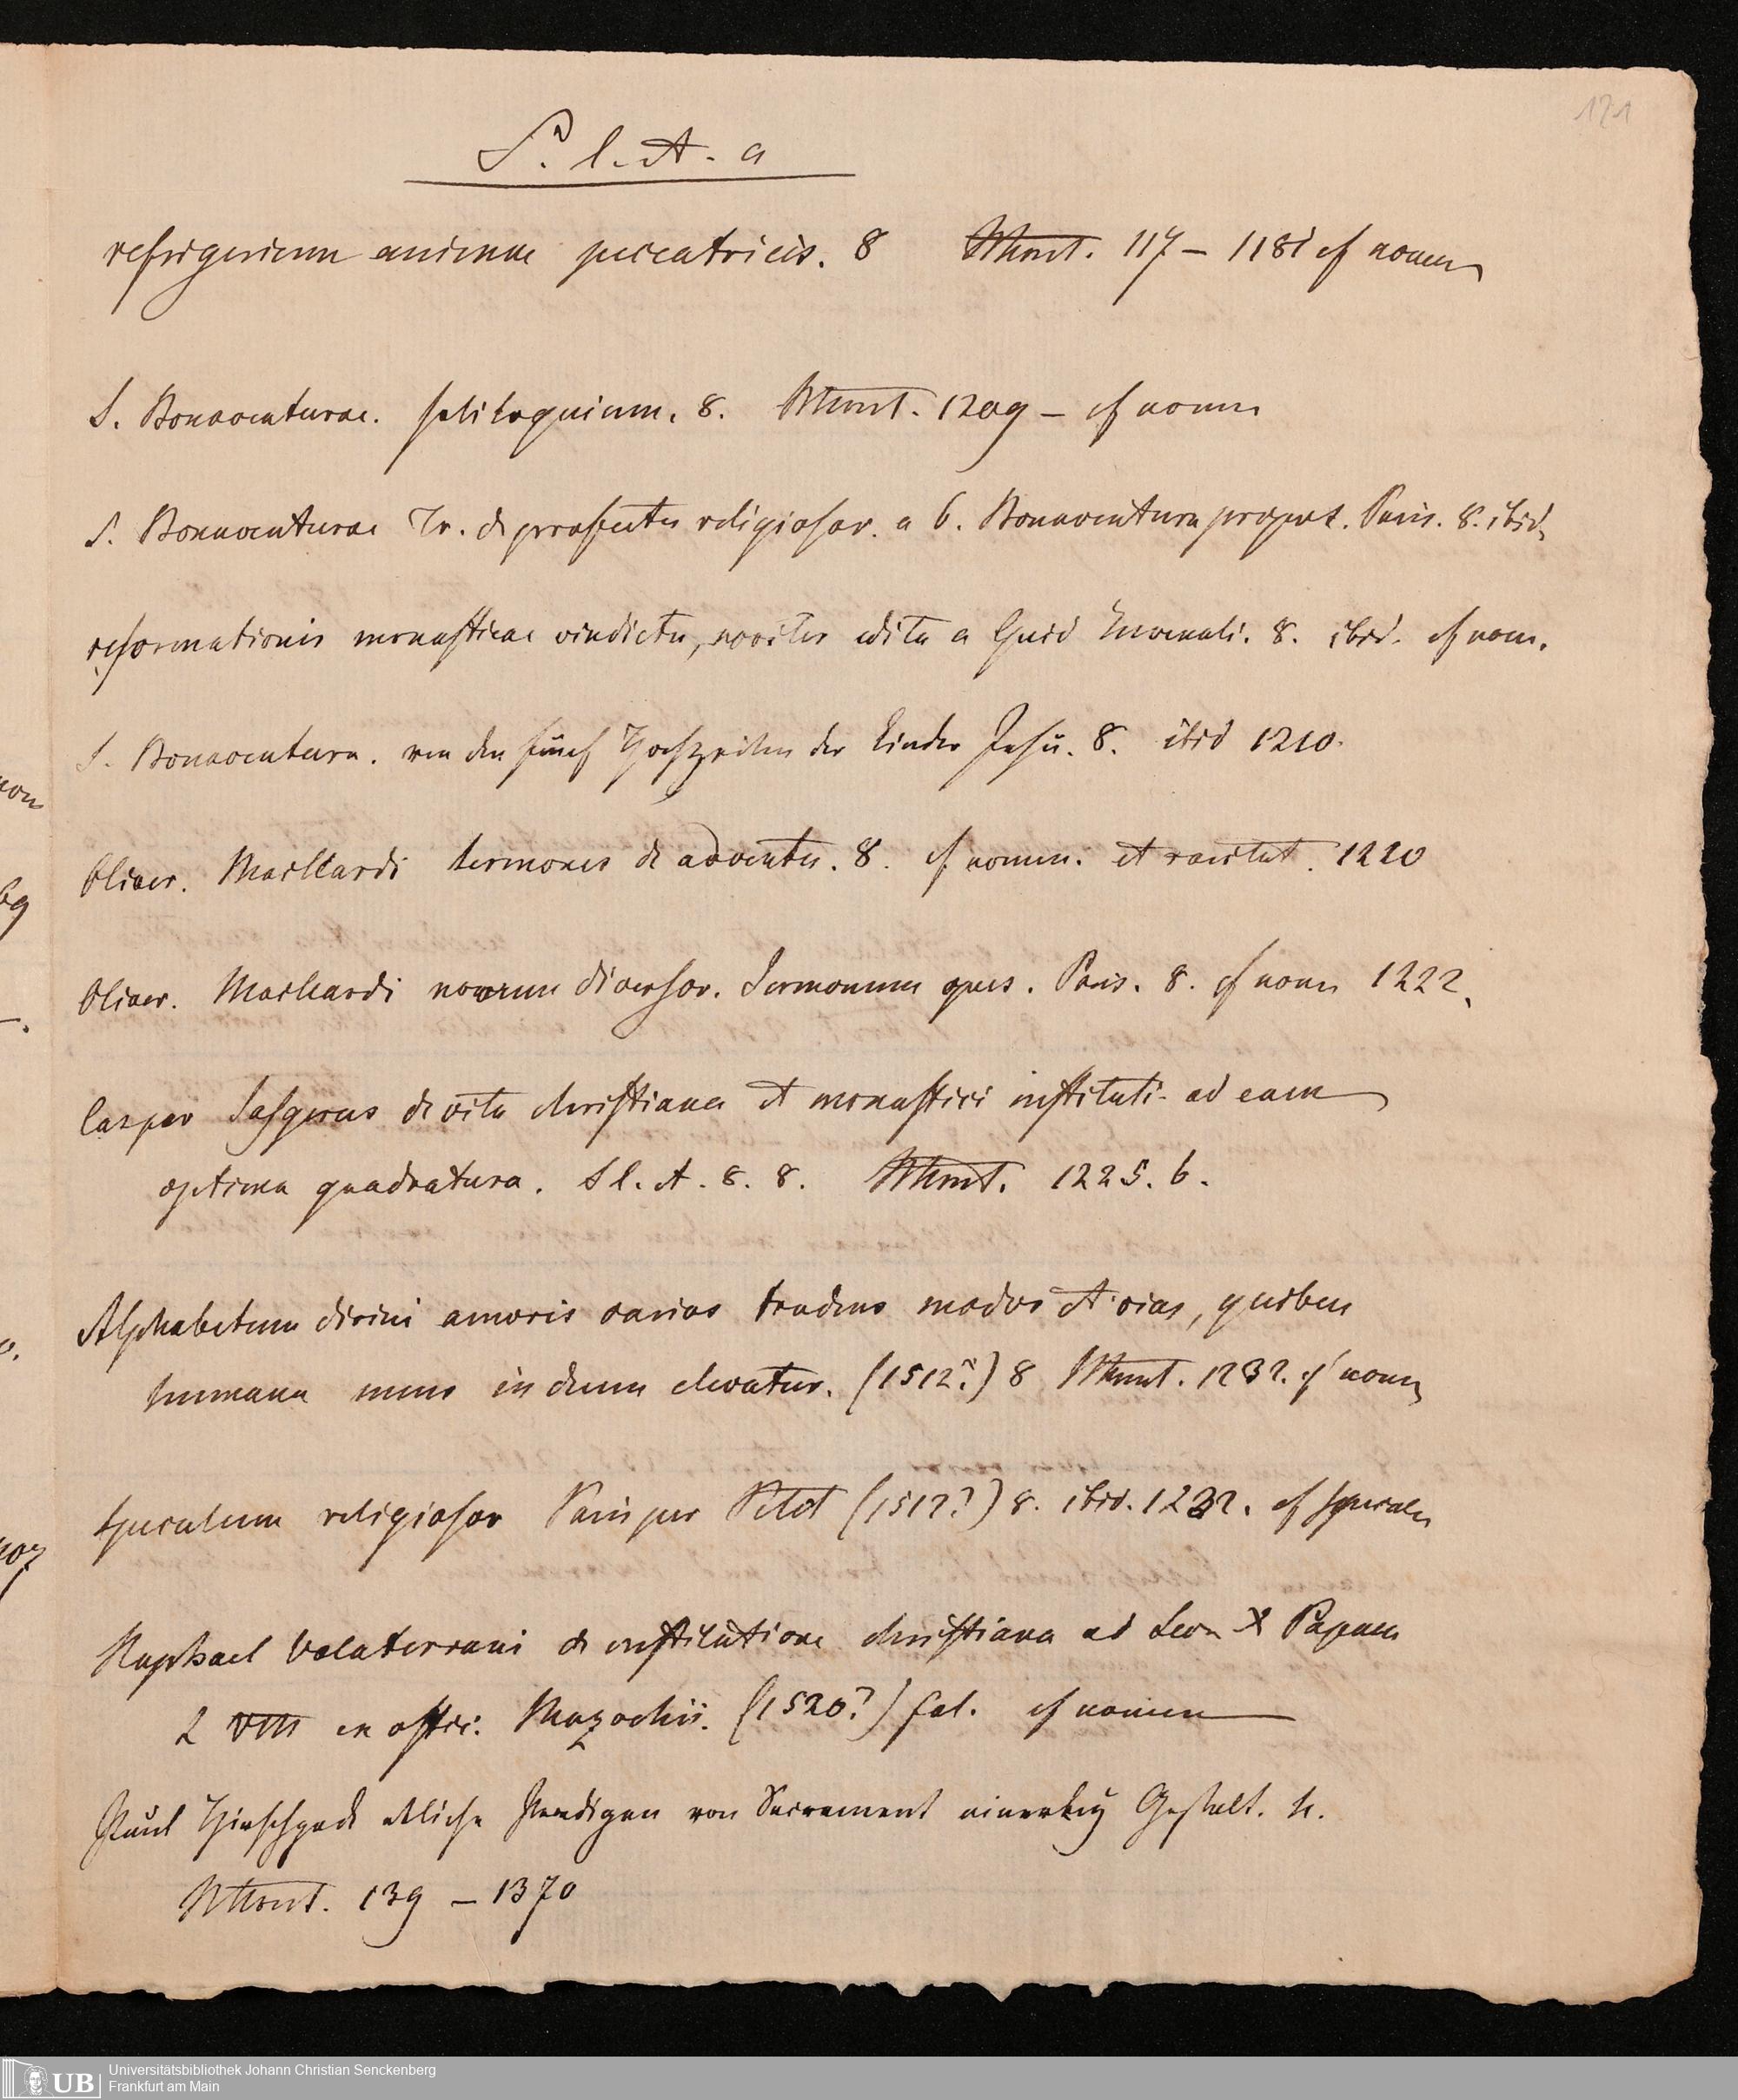 121
S. l. et. a
refrigerium animae peccatricis. 8 Mkmt. 117 – 1181 cf nomen
S. Bonaventurae. soliloquium. 8. Mkmt. 1209 – cf nomen
S. Bonaventurae Tr. de profectu religiosor. a b. Bonaventura Paris. 8. ibid.
reformationis monasticae vindictae, noviter edita a Guid Juvenali. 8. ibid. cf nom.
S. Bonaventura. von den fünf Hochzeiten der Kinder Jesu. 8. ibid 1210.
Oliver. Maillardi sermones de adventu. 8. cf nomen. et 1220
Oliver. Maillardi novum diversor. Sermonum opus. Paris. 8. cf nomen 1222.
Caspar Sasgerus de vita christiana et monastici instituti ad eam
optima quadratura. S l. et. 8. 8. Mkmt. 1225. 6.
Alphabetum divini amoris varios tradens modos et vias, quibus
humana mens in deum elevatur. (1512?) 8 Mkmt. 1232. cf nomen
Speculum religiosor Paris per Petit (1512?) 8. ibid. 1232. cf Speculum
Raphael Volaterrani de institutione christiana ad Leon X Papam
L VIII ex offic. Mazochii. (1520?) fol. cf nomen
Paul Hirschpeck etliche Predigen von Sacrament einerley Gestalt. 4.
Mkmt. 139 – 1370
UB Universitätsbibliothek Johann Christian Senckenberg
Frankfurt am Main